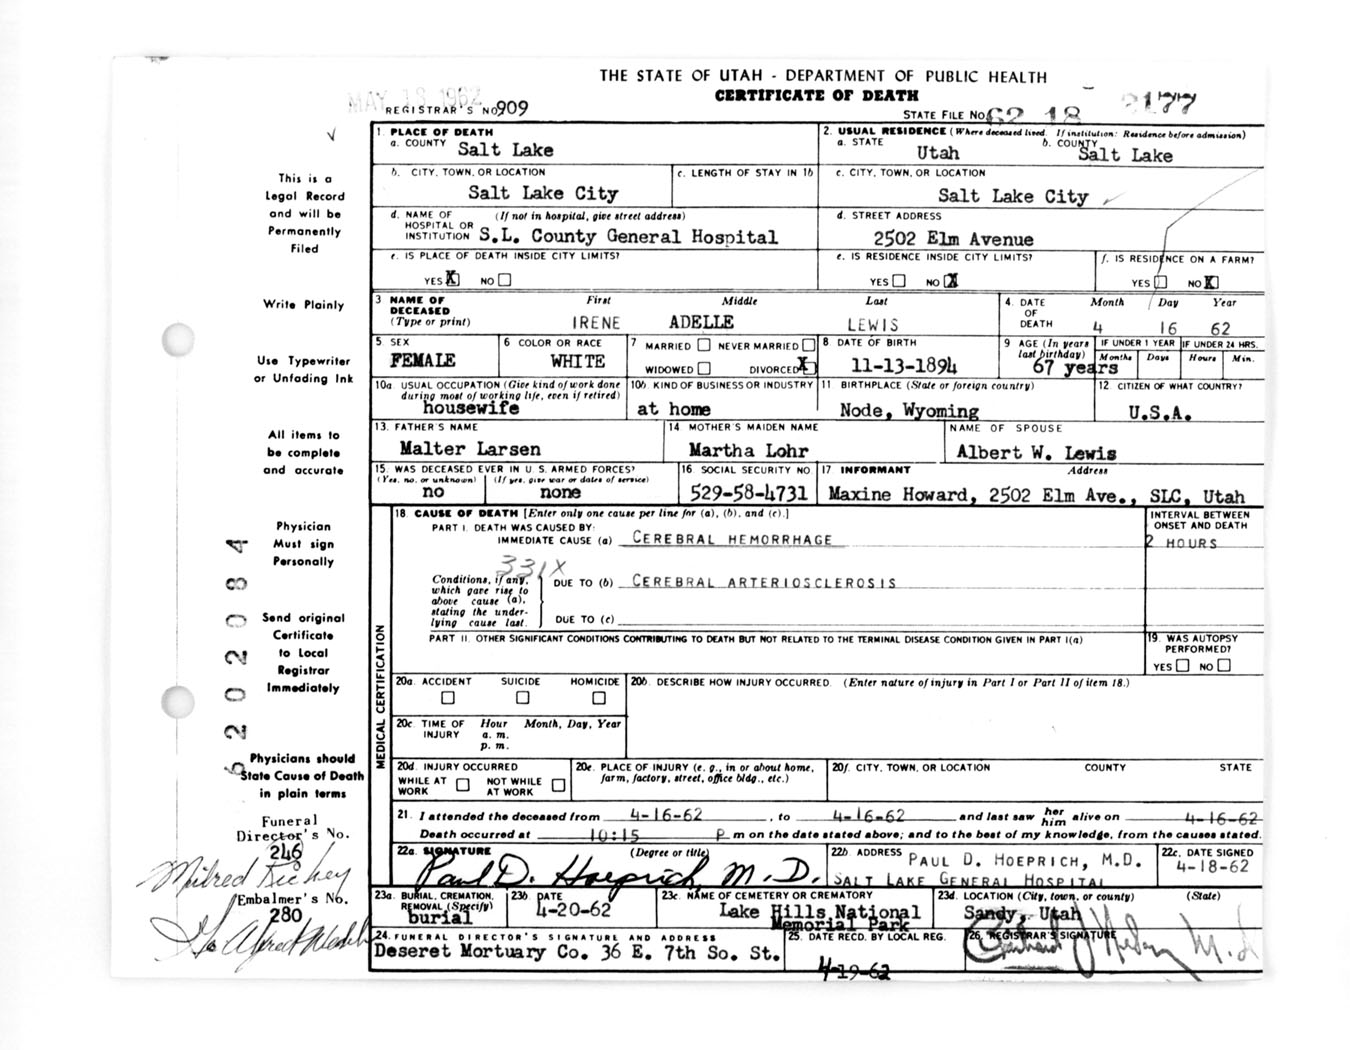 THE STATE OF UTAH - DEPARTMENT OF PUBLIC HEALTH
CERTIFICATE OF DEATH
MAY 18 1962
REGISTRAR'S NO. 909
STATE FILE NO. 62 18 2177
1. PLACE OF DEATH
a. COUNTY Salt Lake
2. USUAL RESIDENCE (Where deceased lived. If institution: Residence before admission)
a. STATE Utah b. COUNTY Salt Lake
b. CITY, TOWN, OR LOCATION Salt Lake City
c. LENGTH OF STAY IN 1b
c. CITY, TOWN, OR LOCATION Salt Lake City
d. NAME OF HOSPITAL OR INSTITUTION (If not in hospital, give street address) S.L. County General Hospital
d. STREET ADDRESS 2502 Elm Avenue
e. IS PLACE OF DEATH INSIDE CITY LIMITS?
YES X NO
e. IS RESIDENCE INSIDE CITY LIMITS?
YES NO X
f. IS RESIDENCE ON A FARM?
YES NO X
3 NAME OF DECEASED (Type or print) First Middle Last
IRENE ADELLE LEWIS
4. DATE OF DEATH Month Day Year
4 16 62
5. SEX FEMALE
6 COLOR OR RACE WHITE
7 MARRIED NEVER MARRIED
WIDOWED DIVORCED X
8 DATE OF BIRTH 11-13-1894
9 AGE (In years last birthday) 67 years
IF UNDER 1 YEAR Months Days
IF UNDER 24 HRS. Hours Min.
10a. USUAL OCCUPATION (Give kind of work done during most of working life, even if retired) housewife
10b. KIND OF BUSINESS OR INDUSTRY at home
11 BIRTHPLACE (State or foreign country) Node, Wyoming
12 CITIZEN OF WHAT COUNTRY? U.S.A.
13. FATHER'S NAME Malter Larsen
14 MOTHER'S MAIDEN NAME Martha Lohr
NAME OF SPOUSE Albert W. Lewis
15. WAS DECEASED EVER IN U.S. ARMED FORCES?
(Yes, no, or unknown) (If yes, give war or dates of service)
no none
16 SOCIAL SECURITY NO. 529-58-4731
17 INFORMANT Address
Maxine Howard, 2502 Elm Ave., SLC, Utah
MEDICAL CERTIFICATION
18. CAUSE OF DEATH [Enter only one cause per line for (a), (b), and (c).]
INTERVAL BETWEEN ONSET AND DEATH
PART I. DEATH WAS CAUSED BY:
IMMEDIATE CAUSE (a) CEREBRAL HEMORRHAGE 2 HOURS
331X
Conditions, if any, which gave rise to above cause (a), stating the underlying cause last.
DUE TO (b) CEREBRAL ARTERIOSCLEROSIS
DUE TO (c)
PART II. OTHER SIGNIFICANT CONDITIONS CONTRIBUTING TO DEATH BUT NOT RELATED TO THE TERMINAL DISEASE CONDITION GIVEN IN PART I(a)
19. WAS AUTOPSY PERFORMED?
YES NO
20a. ACCIDENT SUICIDE HOMICIDE
20b. DESCRIBE HOW INJURY OCCURRED. (Enter nature of injury in Part I or Part II of item 18.)
20c. TIME OF INJURY Hour Month, Day, Year
a. m.
p. m.
20d. INJURY OCCURRED
WHILE AT WORK NOT WHILE AT WORK
20e. PLACE OF INJURY (e. g., in or about home, farm, factory, street, office bldg., etc.)
20f. CITY, TOWN, OR LOCATION COUNTY STATE
21. I attended the deceased from 4-16-62, to 4-16-62 and last saw her him alive on 4-16-62
Death occurred at 10:15 P m on the date stated above; and to the best of my knowledge, from the causes stated.
22a. SIGNATURE (Degree or title)
Paul D. Hoeprich, M.D.
22b. ADDRESS PAUL D. HOEPRICH, M.D.
SALT LAKE GENERAL HOSPITAL
22c. DATE SIGNED 4-18-62
23a. BURIAL, CREMATION, REMOVAL (Specify) burial
23b. DATE 4-20-62
23c. NAME OF CEMETERY OR CREMATORY
Lake Hills National Memorial Park
23d. LOCATION (City, town, or county) (State)
Sandy, Utah
24. FUNERAL DIRECTOR'S SIGNATURE AND ADDRESS
Deseret Mortuary Co. 36 E. 7th So. St.
25. DATE RECD. BY LOCAL REG.
4-19-62
26. REGISTRAR'S SIGNATURE
M.D.
This is a
Legal Record
and will be
Permanently
Filed
Write Plainly
Use Typewriter
or Unfading Ink
All items to
be complete
and accurate
Physician
Must sign
Personally
Send original
Certificate
to Local
Registrar
Immediately
Physicians should
State Cause of Death
in plain terms
Funeral
Director's No.
246
Mildred Richey
Embalmer's No.
280